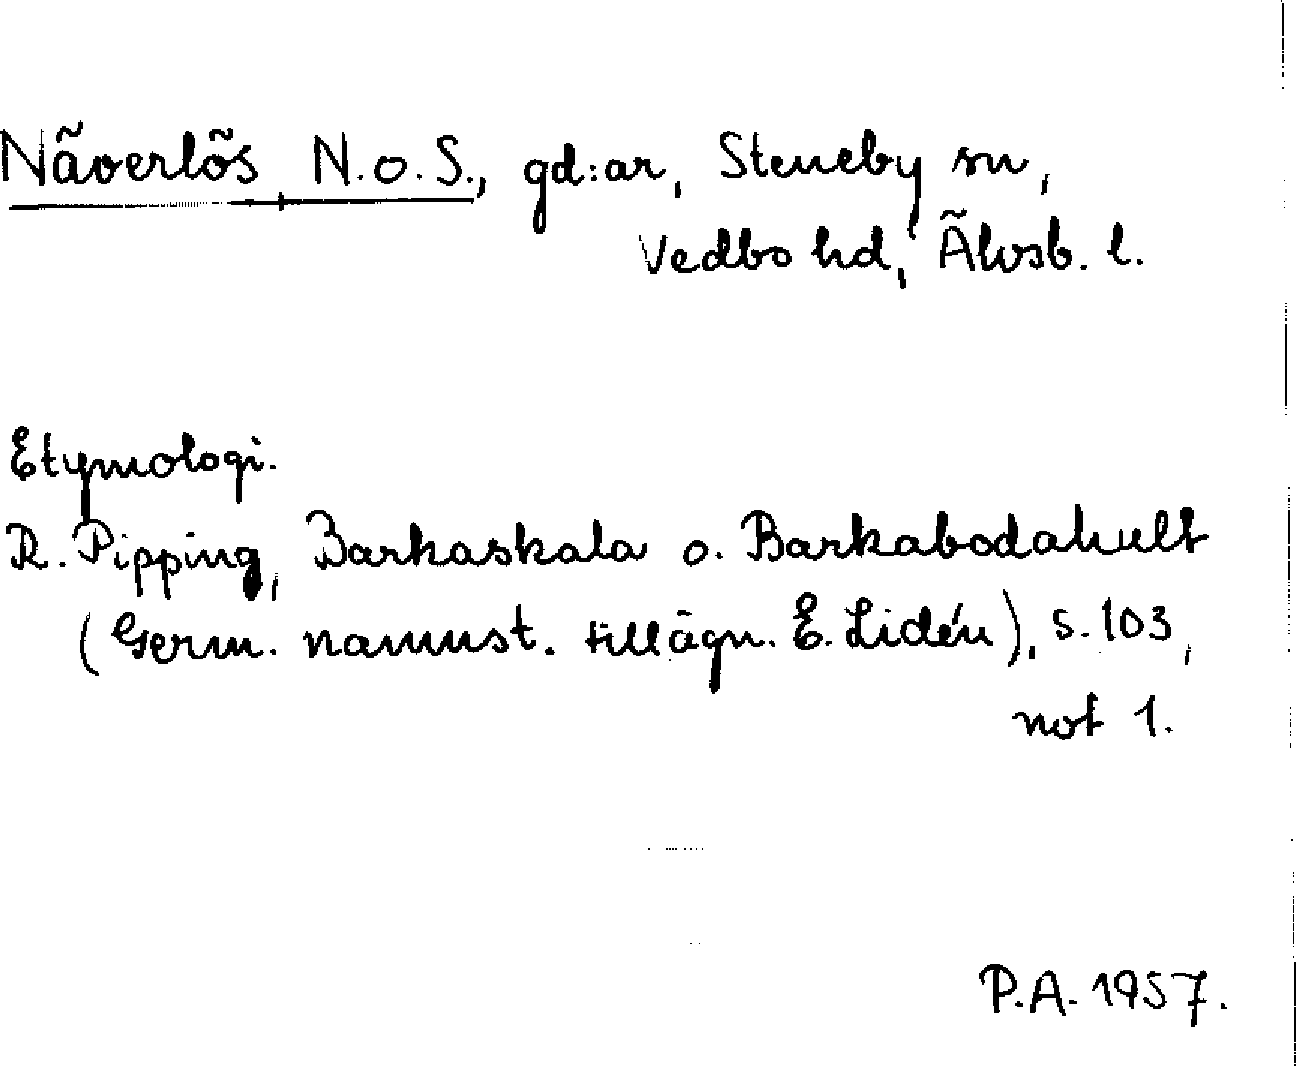 Näverlös N.o.S., gd:ar, Steneby sn,
Vedbo hd, Älvsb. l.
Etymologi.
R. Pipping, Barkaskala o. Barkabodahult
(Germ. namnst. tillägn. E. Lidén), s. 103,
not 1.
P.A. 1957.